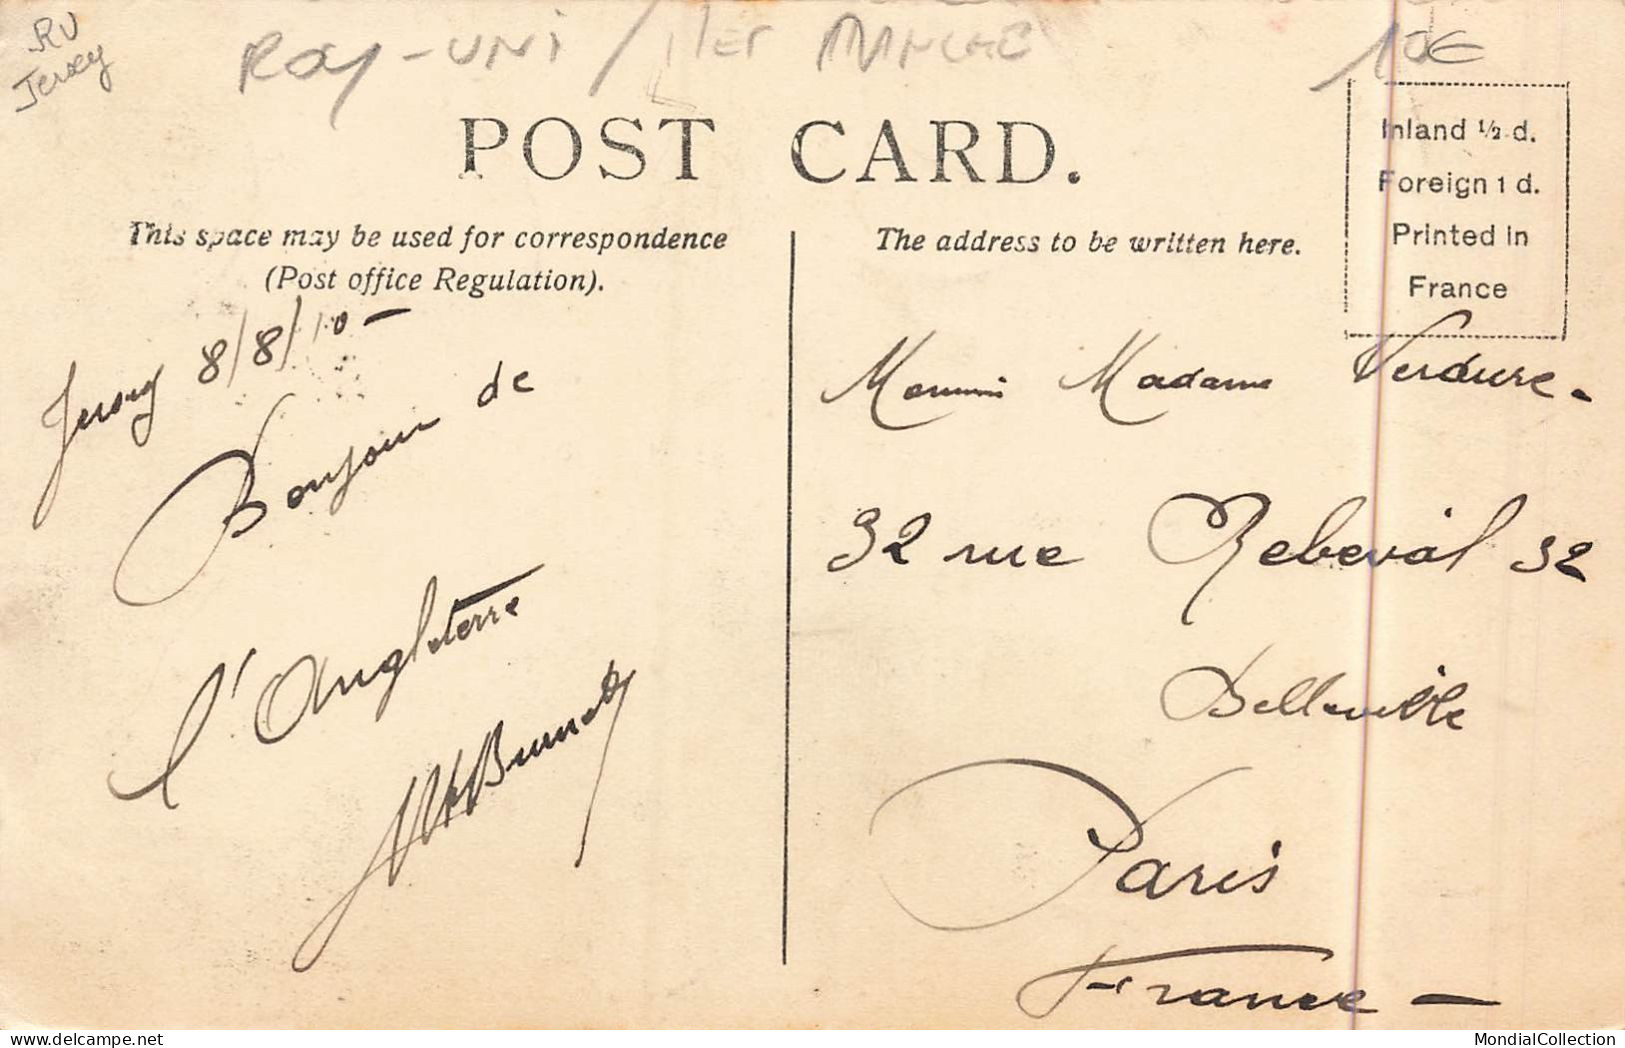 RU
Jersey
ROY-UNI / ILES MANCHE
10€
POST CARD.
This space may be used for correspondence
(Post office Regulation).
The address to be written here.
Inland ½ d.
Foreign 1 d.
Printed in
France
Jersey 8/8/10 -
Bonjour de
l'Angleterre
Madame Verdure -
32 rue Rebeval 32
Belleville
Paris
France -
MondialCollection